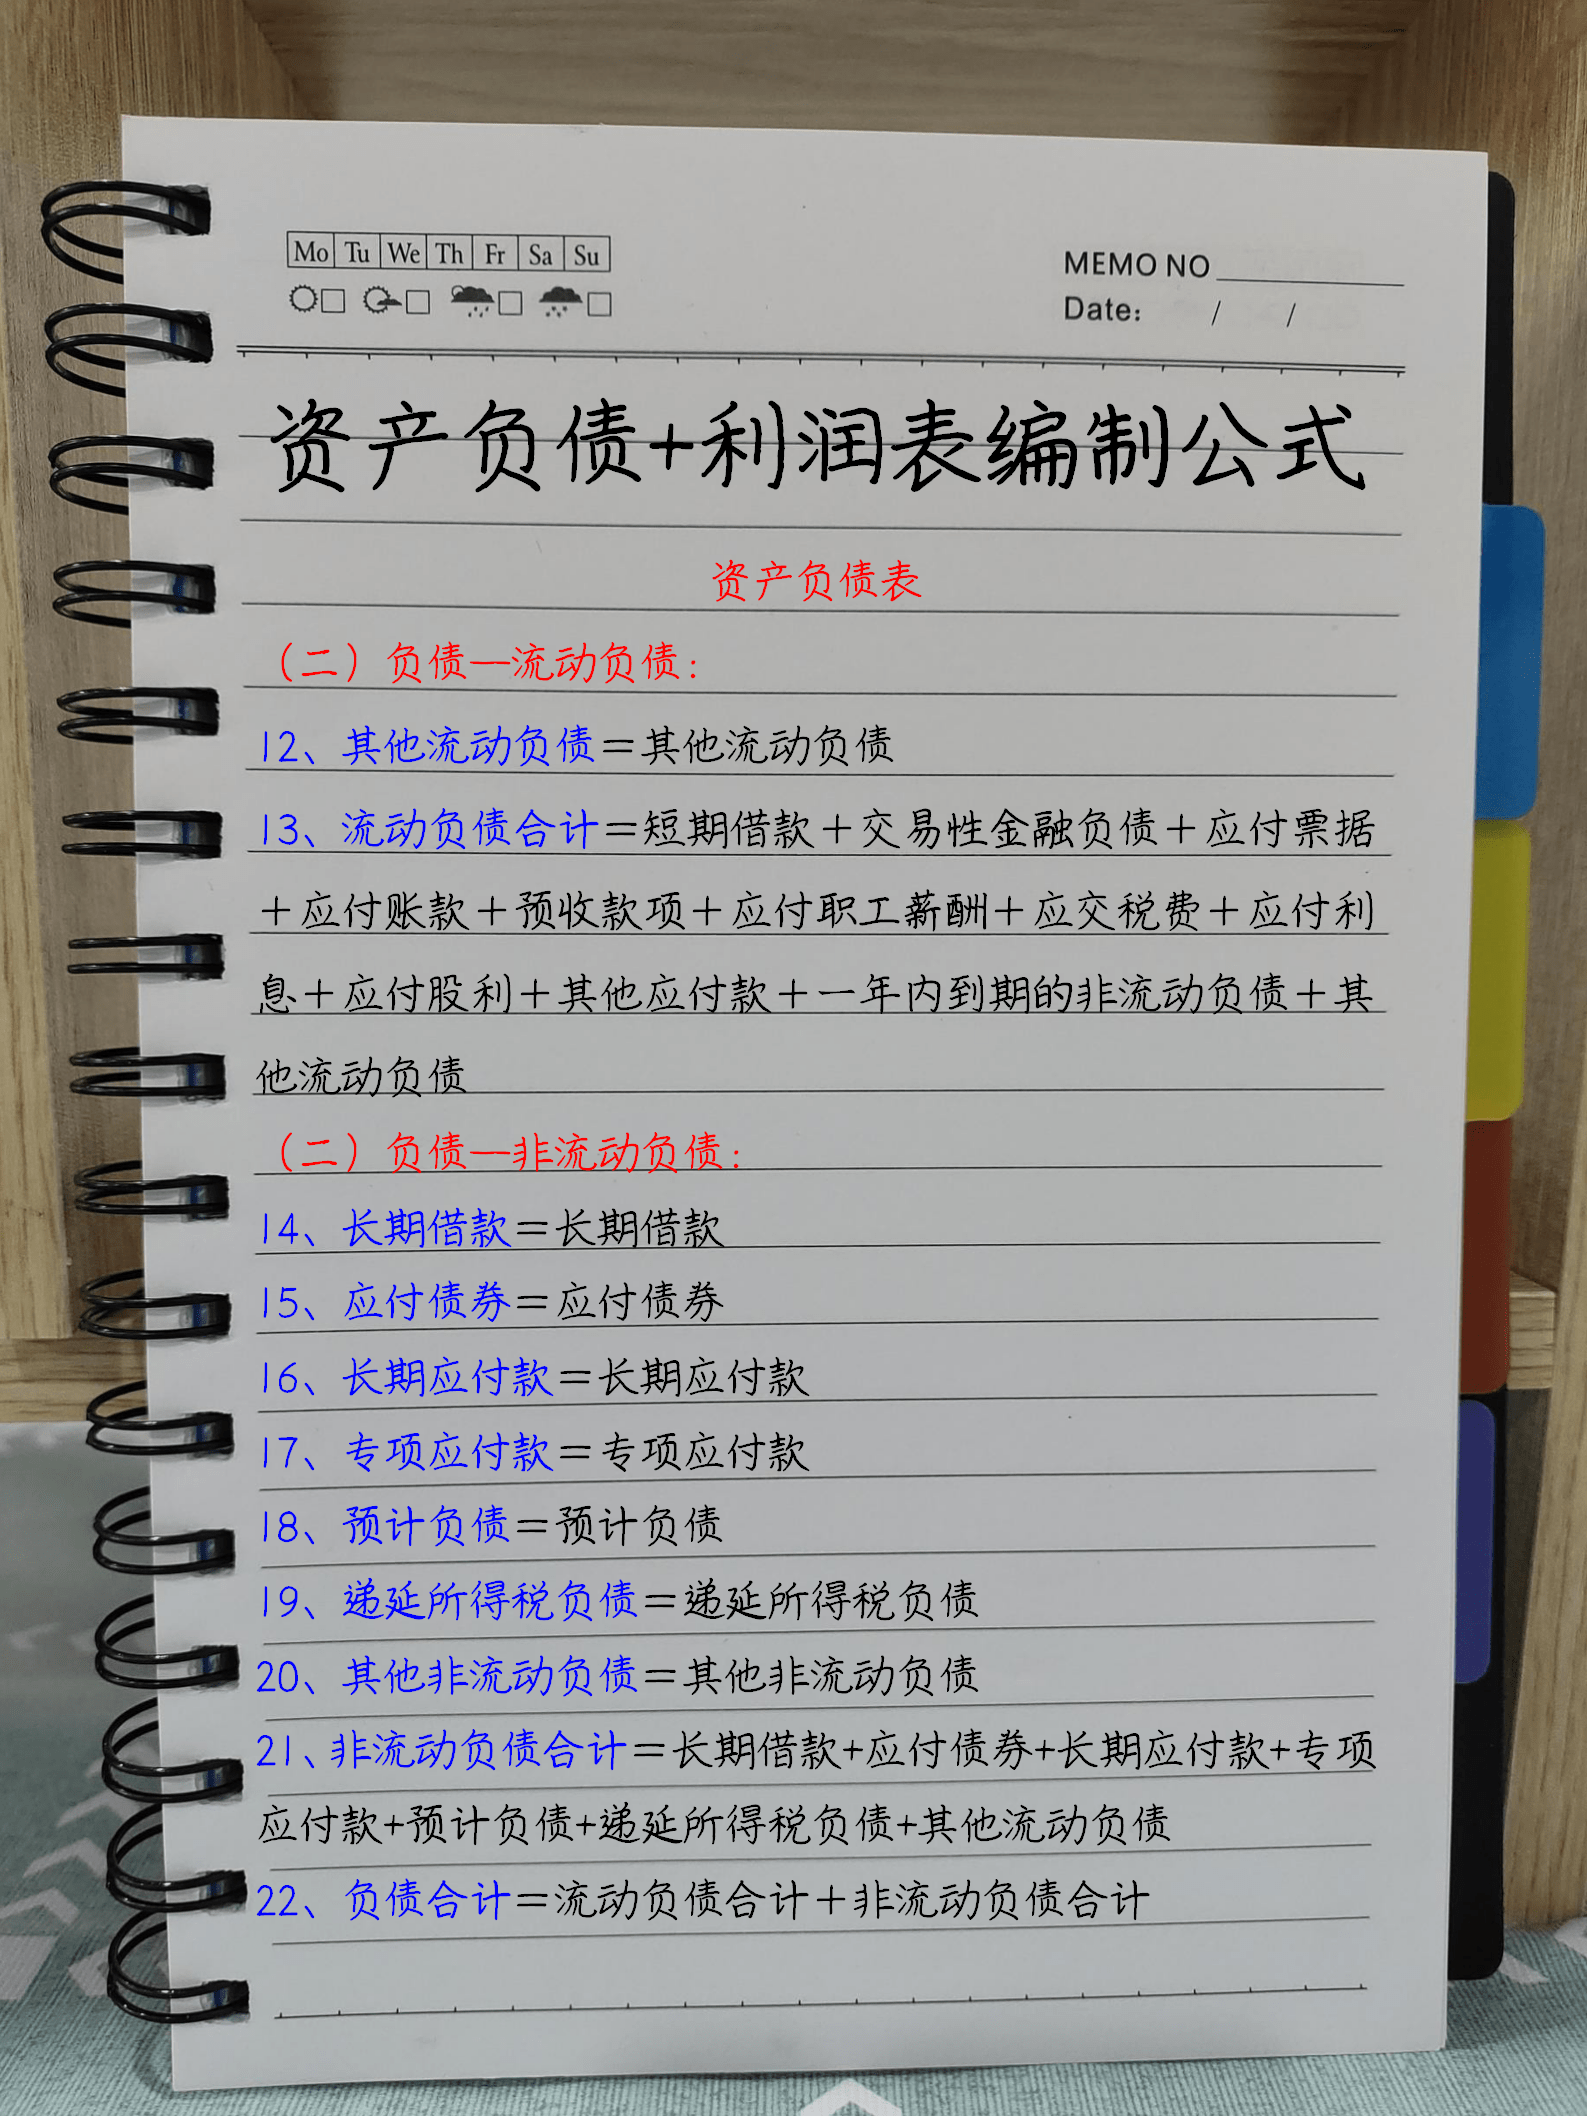 Mo Tu We Th Fr Sa Su
MEMO NO
Date: / /
资产负债+利润表编制公式
资产负债表
（二）负债—流动负债：
12、其他流动负债＝其他流动负债
13、流动负债合计＝短期借款＋交易性金融负债＋应付票据
＋应付账款＋预收款项＋应付职工薪酬＋应交税费＋应付利
息＋应付股利＋其他应付款＋一年内到期的非流动负债＋其
他流动负债
（二）负债—非流动负债：
14、长期借款＝长期借款
15、应付债券＝应付债券
16、长期应付款＝长期应付款
17、专项应付款＝专项应付款
18、预计负债＝预计负债
19、递延所得税负债＝递延所得税负债
20、其他非流动负债＝其他非流动负债
21、非流动负债合计＝长期借款+应付债券+长期应付款+专项
应付款+预计负债+递延所得税负债+其他流动负债
22、负债合计＝流动负债合计＋非流动负债合计